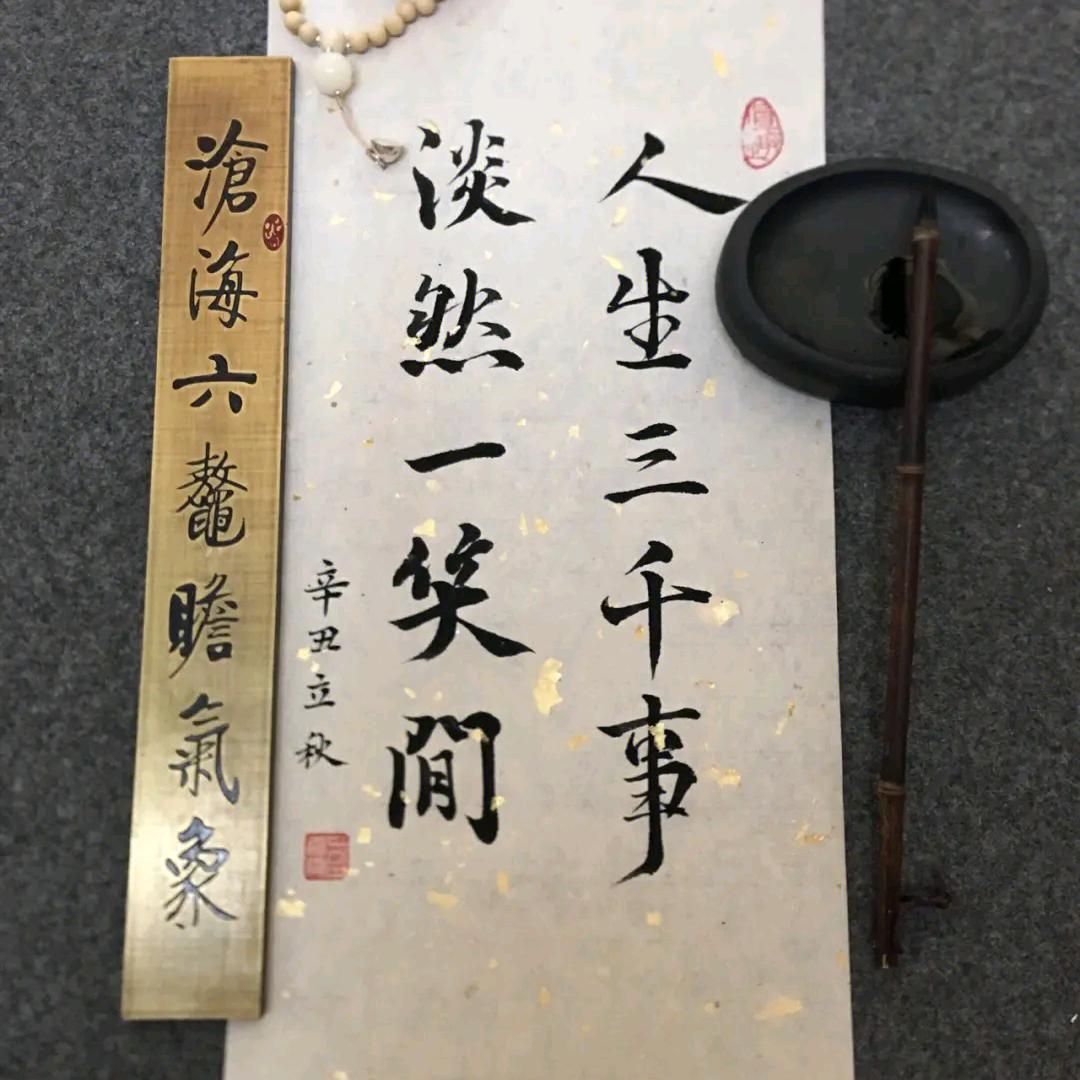 人生三千事
淡然一笑間
辛丑立秋
滄海六鼇瞻氣象